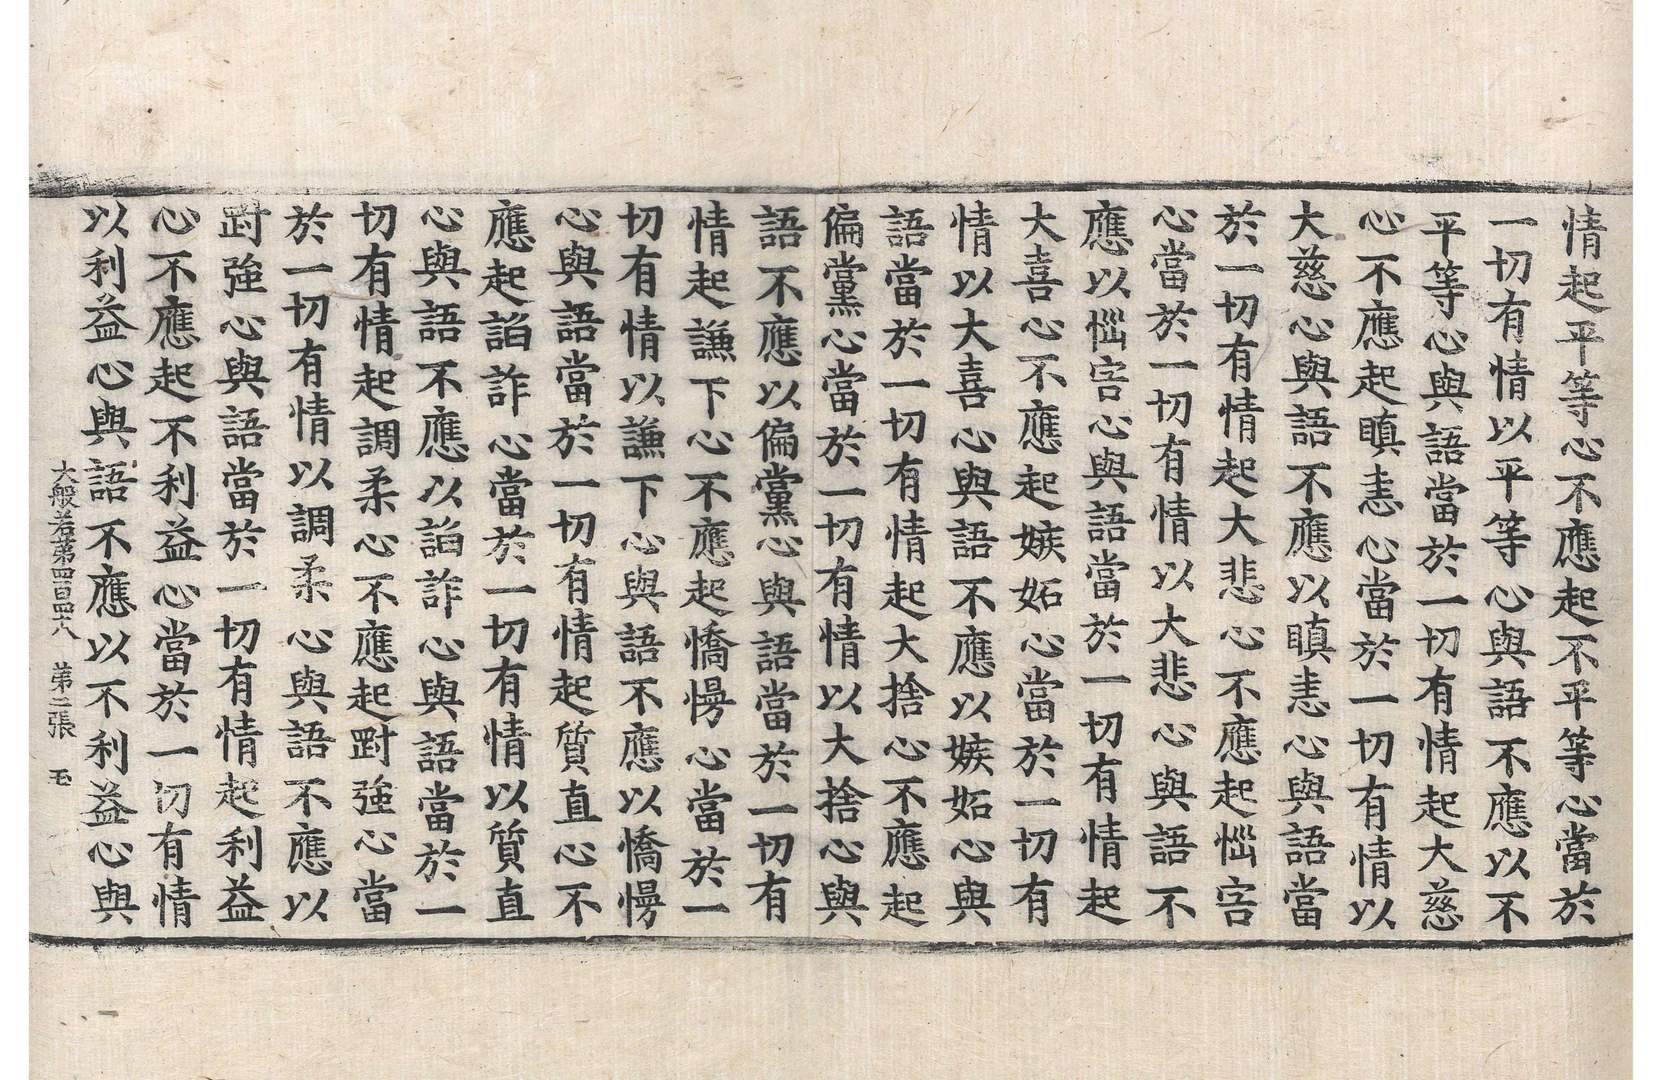 情起平等心不應起不平等心當於
一切有情以平等心與語不應以不
平等心與語當於一切有情起大慈
心不應起瞋恚心當於一切有情以
大慈心與語不應以瞋恚心與語當
於一切有情起大悲心不應起惱害
心當於一切有情以大悲心與語不
應以惱害心與語當於一切有情起
大喜心不應起嫉妬心當於一切有
情以大喜心與語不應以嫉妬心與
語當於一切有情起大捨心不應起
偏黨心當於一切有情以大捨心與
語不應以偏黨心與語當於一切有
情起謙下心不應起憍慢心當於一
切有情以謙下心與語不應以憍慢
心與語當於一切有情起質直心不
應起諂詐心當於一切有情以質直
心與語不應以諂詐心與語當於一
切有情起調柔心不應起剛強心當
於一切有情以調柔心與語不應以
剛強心與語當於一切有情起利益
心不應起不利益心當於一切有情
以利益心與語不應以不利益心與
大般若第四百四十八 第二張 玉